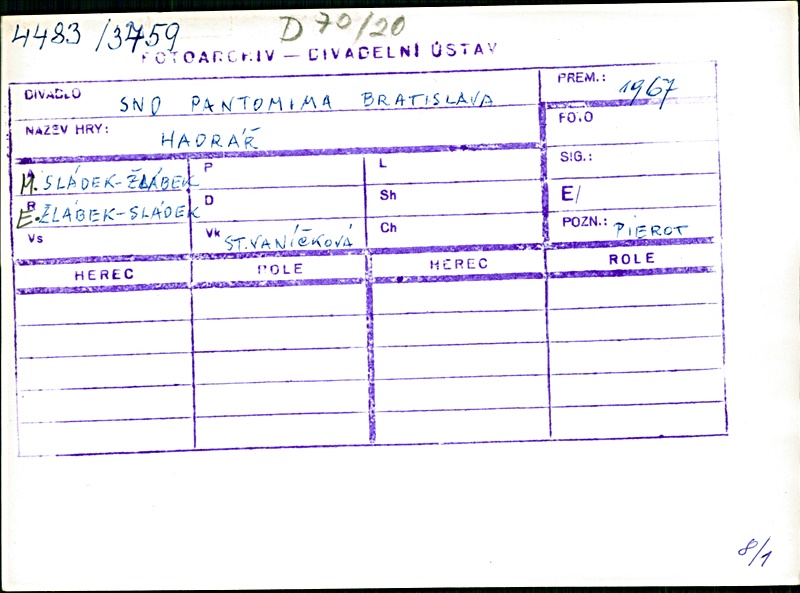 4483/3759 D 70/20
FOTOARCHIV — DIVADELNÍ ÚSTAV
DIVADLO SND PANTOMIMA BRATISLAVA PREM.: 1967
NÁZEV HRY: HADRÁŘ FOTO
A M. SLÁDEK-ŽLÁBEK P L SIG.:
R E. ŽLÁBEK-SLÁDEK D Sh E/
Vs Vk ST. VANÍČKOVÁ Ch POZN.: PIEROT
HEREC ROLE HEREC ROLE
8/1